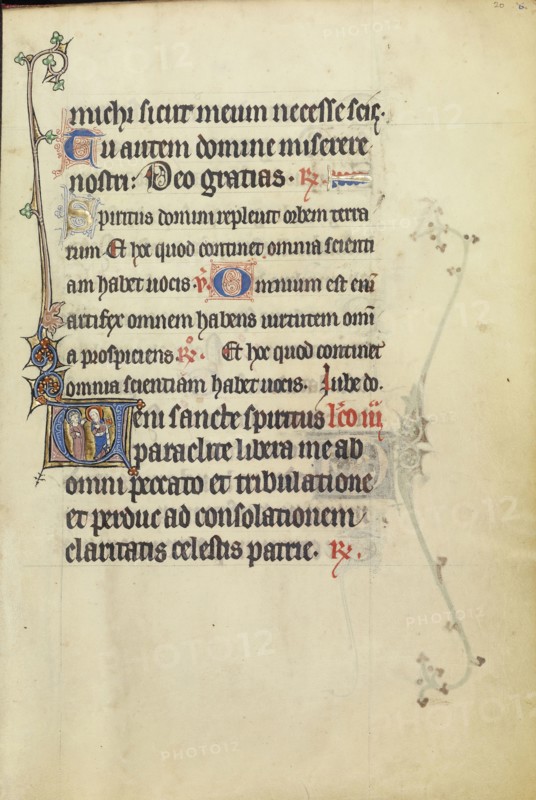 20
michi sicut meum necesse scis.
Tu autem domine miserere
nostri: Deo gratias. R.
Spiritus domini replevit orbem terra
rum Et hoc quod continet omnia scienti
am habet vocis. v. Omnium est eni
artifex omnem habens virtutem omi
a prospiciens. R. Et hoc quod continet
omnia scientiam habet vocis. Iube do.
Veni sancte spiritus lco iii
paraclite libera me ab
omni peccato et tribulatione
et perduc ad consolationem
claritatis celestis patrie. R.
PHOTO12